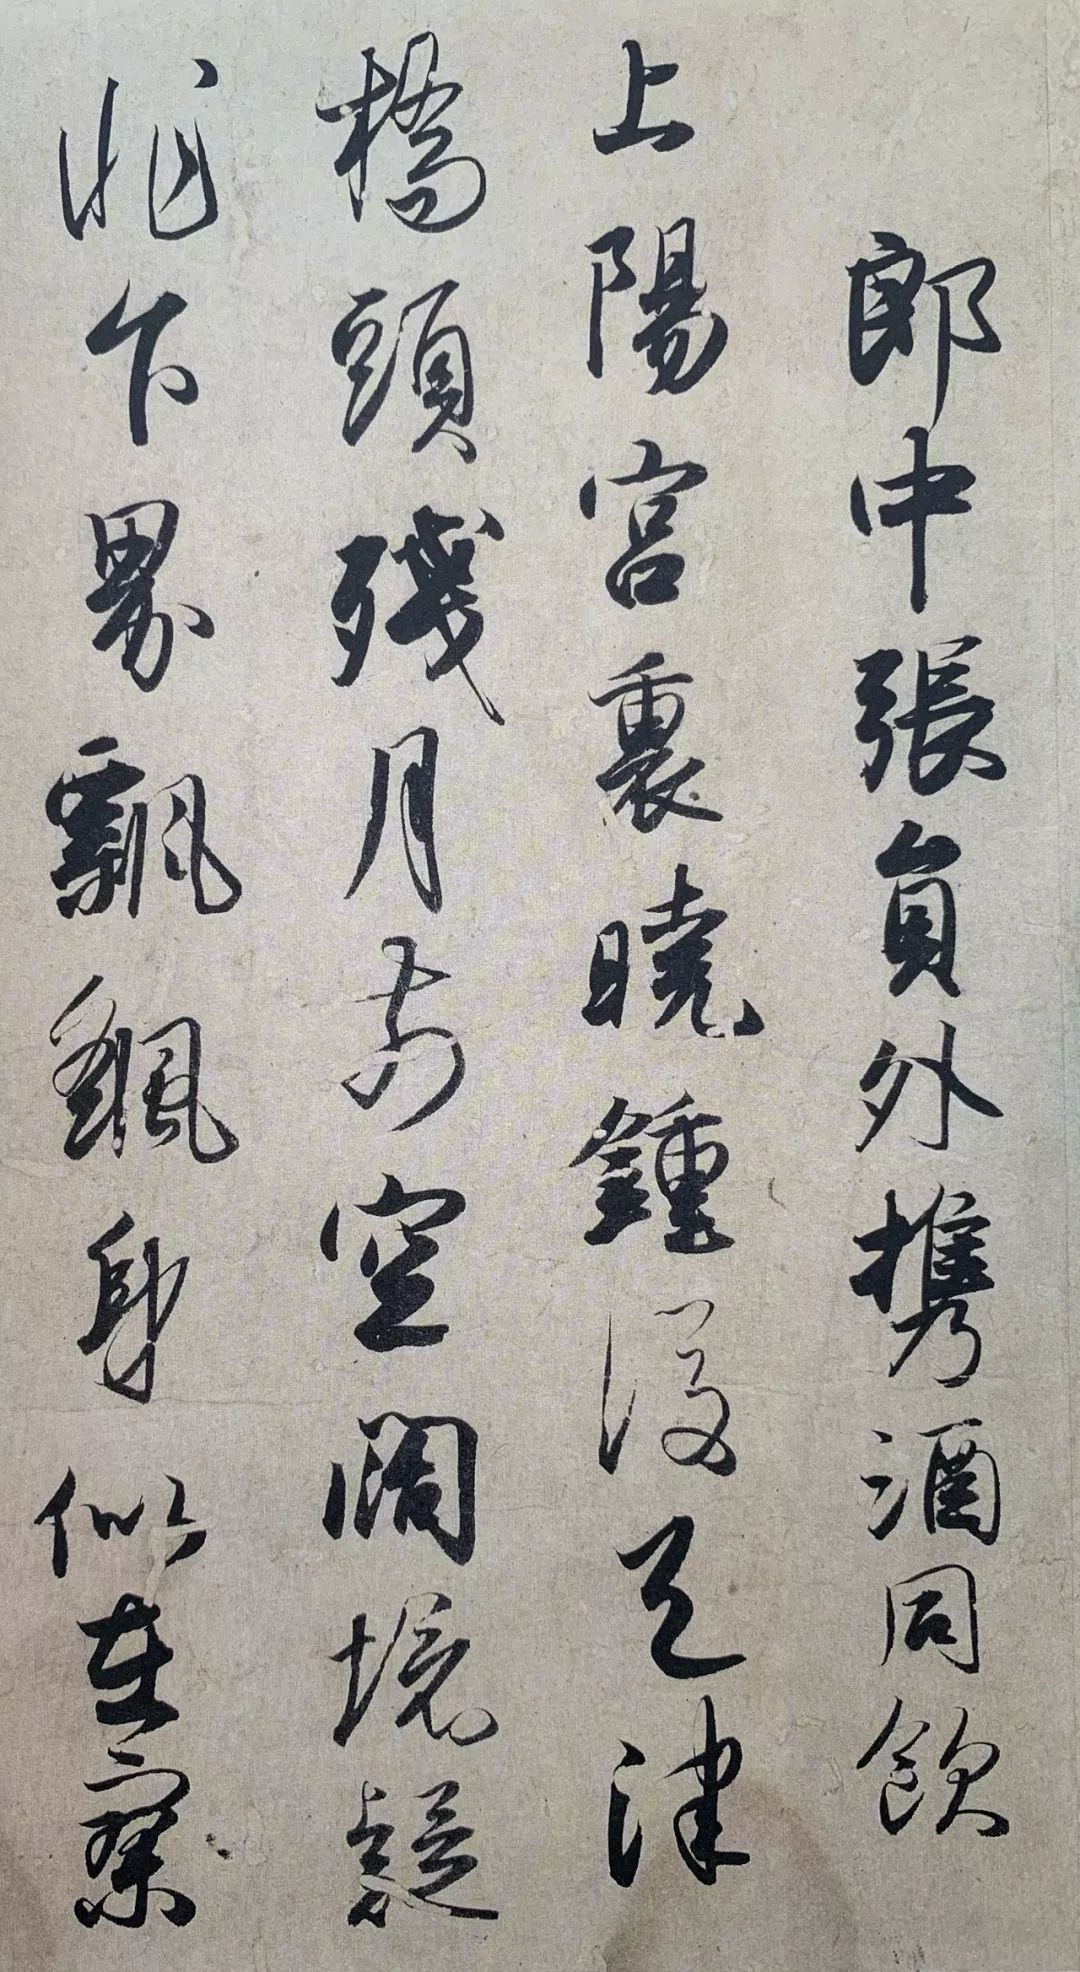 郎中張員外携酒同飲
上陽宮裏曉鍾後天津
橋頭殘月前空闊境疑
非下界飄颻身似在寥